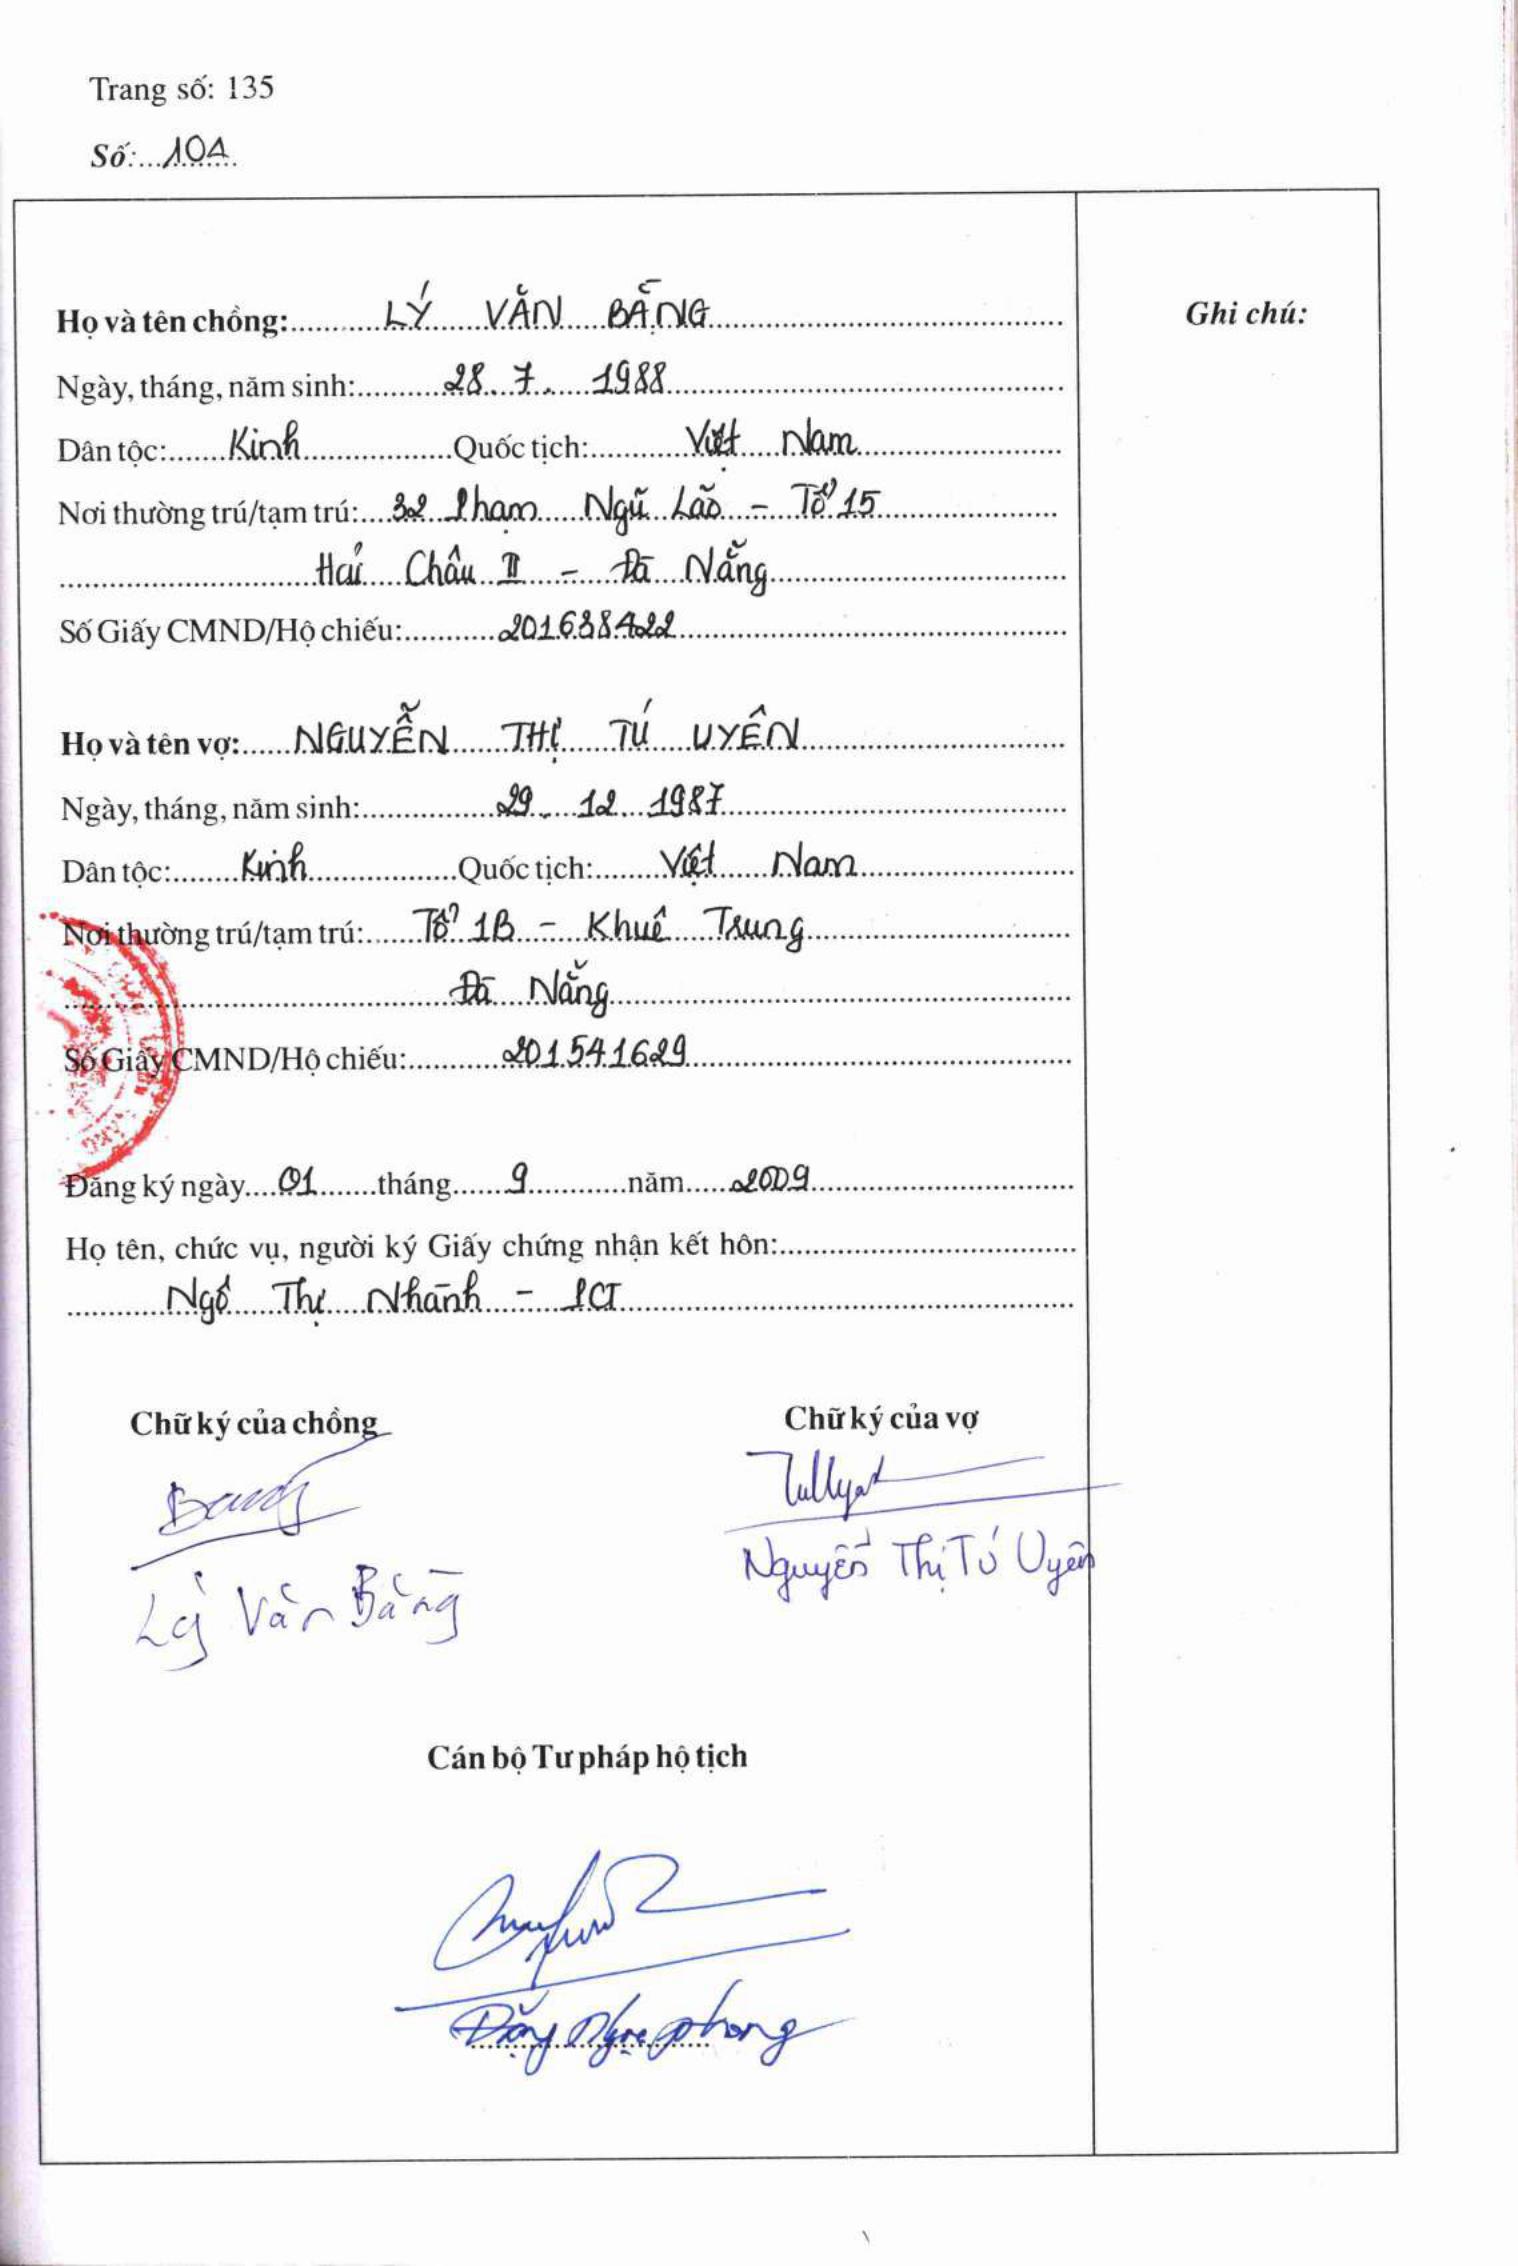 Trang số: 135
Số: 101
Họ và tên chồng: LÝ VĂN BẰNG
Ghi chú:
Ngày, tháng, năm sinh: 28. 7. 1988
Dân tộc: Kinh Quốc tịch: Việt Nam
Nơi thường trú/tạm trú: 32 Phạm Ngũ Lão - Tổ 15
Hải Châu II - Đà Nẵng
Số Giấy CMND/Hộ chiếu: 201638422
Họ và tên vợ: NGUYỄN THỊ TÚ UYÊN
Ngày, tháng, năm sinh: 29. 12 1987
Dân tộc: Kinh Quốc tịch: Việt Nam
Nơi thường trú/tạm trú: Tổ 1B - Khuê Trung
Đà Nẵng
Số Giấy CMND/Hộ chiếu: 201541629
Đăng ký ngày 01 tháng 9 năm 2009
Họ tên, chức vụ, người ký Giấy chứng nhận kết hôn:
Ngô Thị Nhành - PCT
Chữ ký của chồng Chữ ký của vợ
Lý Văn Bằng Nguyễn Thị Tú Uyên
Cán bộ Tư pháp hộ tịch
Đặng Ngọc Phong